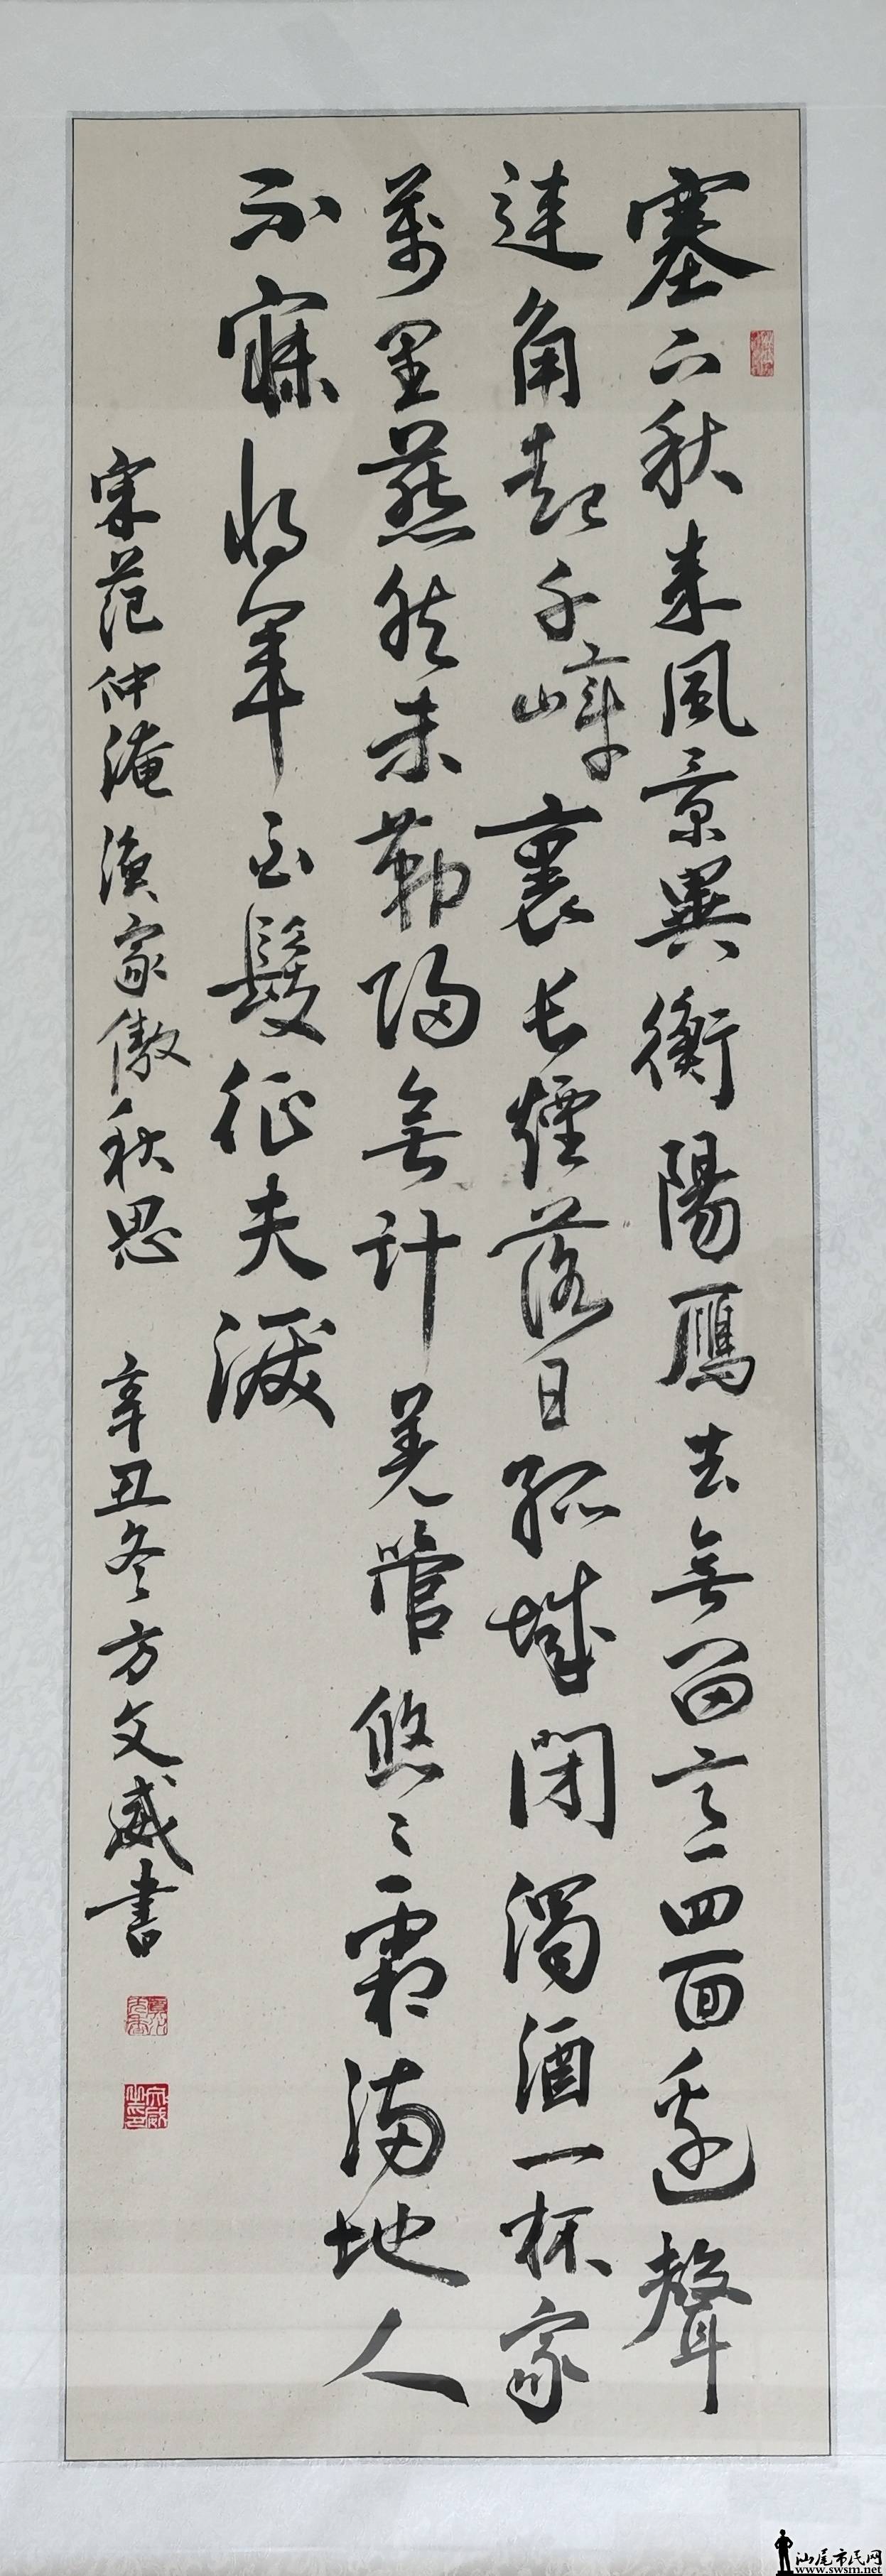 塞下秋来風景異衡陽雁去無留意四面邊聲
連角起千嶂裏长煙落日孤城閉濁酒一杯家
萬里燕然未勒歸無计羌管悠々霜满地人
不寐将軍白髮征夫淚
宋范仲淹漁家傲秋思 辛丑冬方文威书
汕尾市民网
www.swsm.net